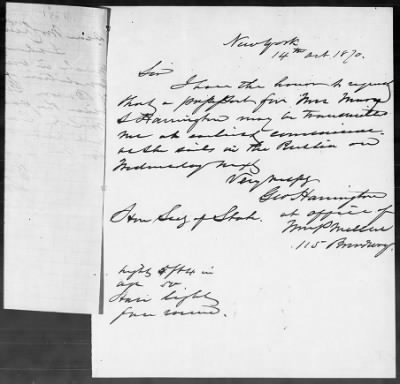 New York
14th Oct 1870.
Sir
I have the honor to request
that a passport for Mrs Mary
S Harrington may be transmitted
me at earliest convenience.
as she sails in the Russia on
Wednesday next
Very respy
Geo Harrington
Hon Secy of State. at office of
115 Broadway.
hight 5 ft 4 in
age 50
Hair light
face round.